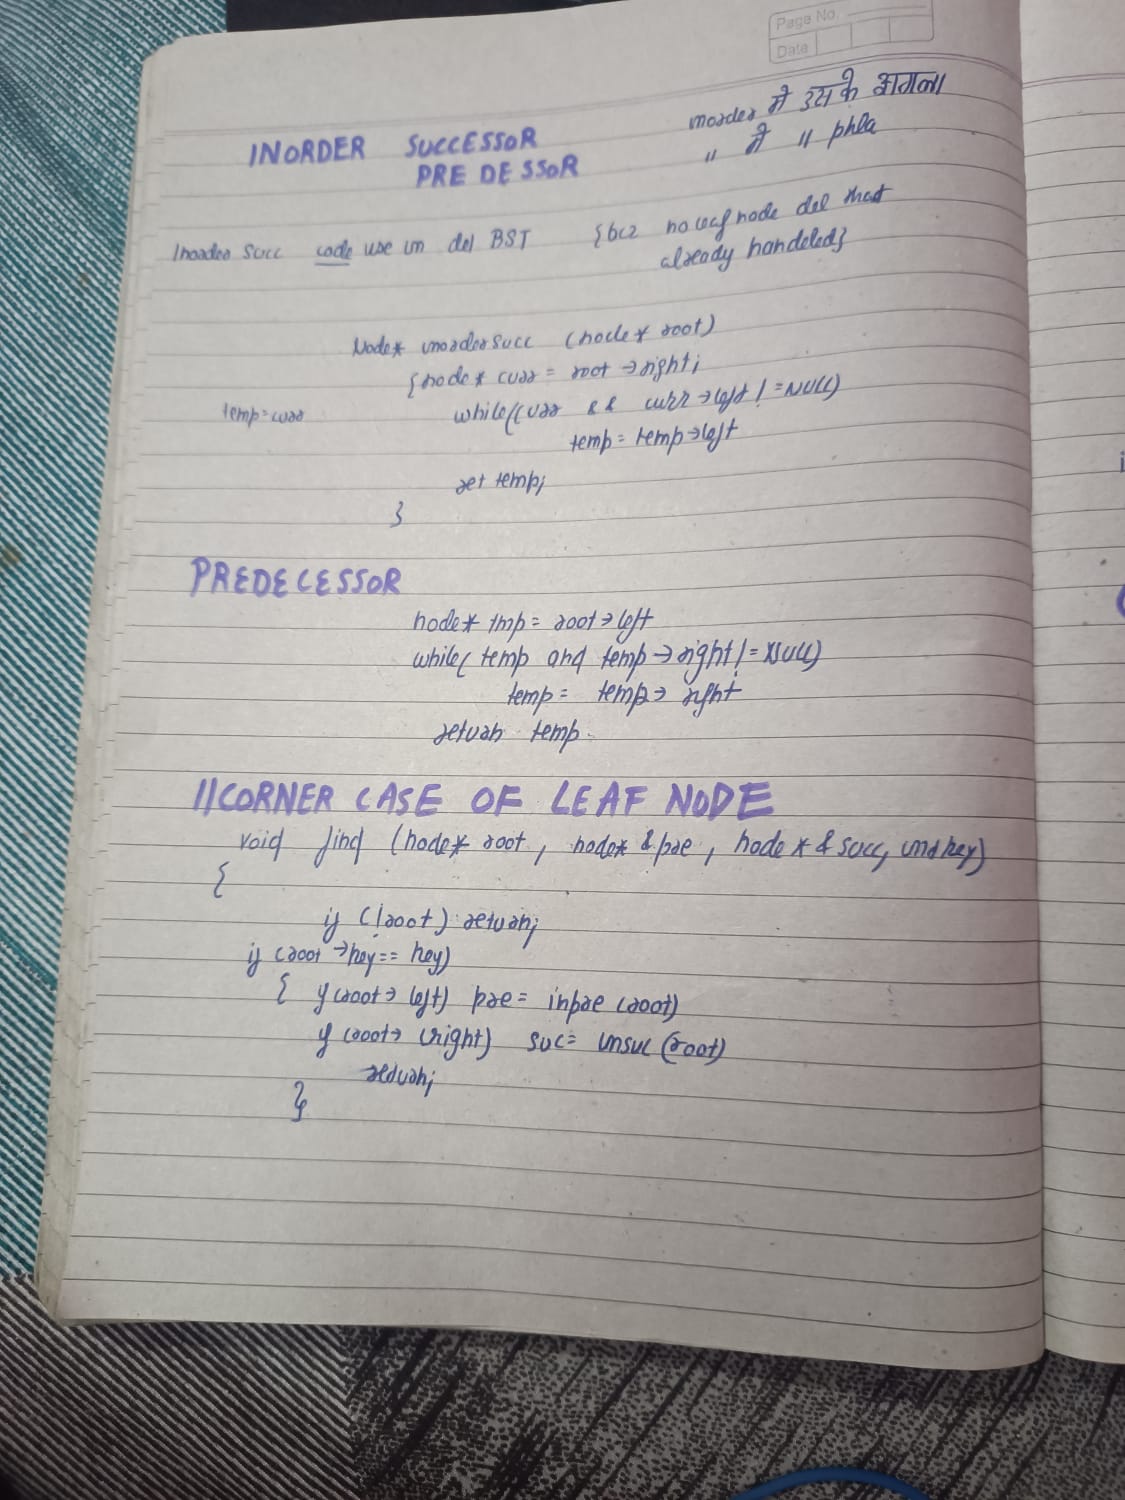 Page No.
Date
INORDER SUCCESSOR
PREDESSOR
inorder में उसके अगला
" में " phla
Inorder Succ code use in del BST {bcz no leaf node del that
already handeled}
Node* inorderSucc (node* root)
{node* curr = root →right;
temp=curr
while(curr && curr→left != NULL)
temp = temp→left
ret temp;
}
PREDECESSOR
node* tmp = root→left
while( temp and temp→right != NULL)
temp = temp→ right
return temp.
//CORNER CASE OF LEAF NODE
void find (node* root, node* &pre, node* & succ, key)
{
if (!root) return;
if (root →key == key)
{ if (root→ left) pre = inpre (root)
if (root→ right) suc= insuc (root)
return;
}